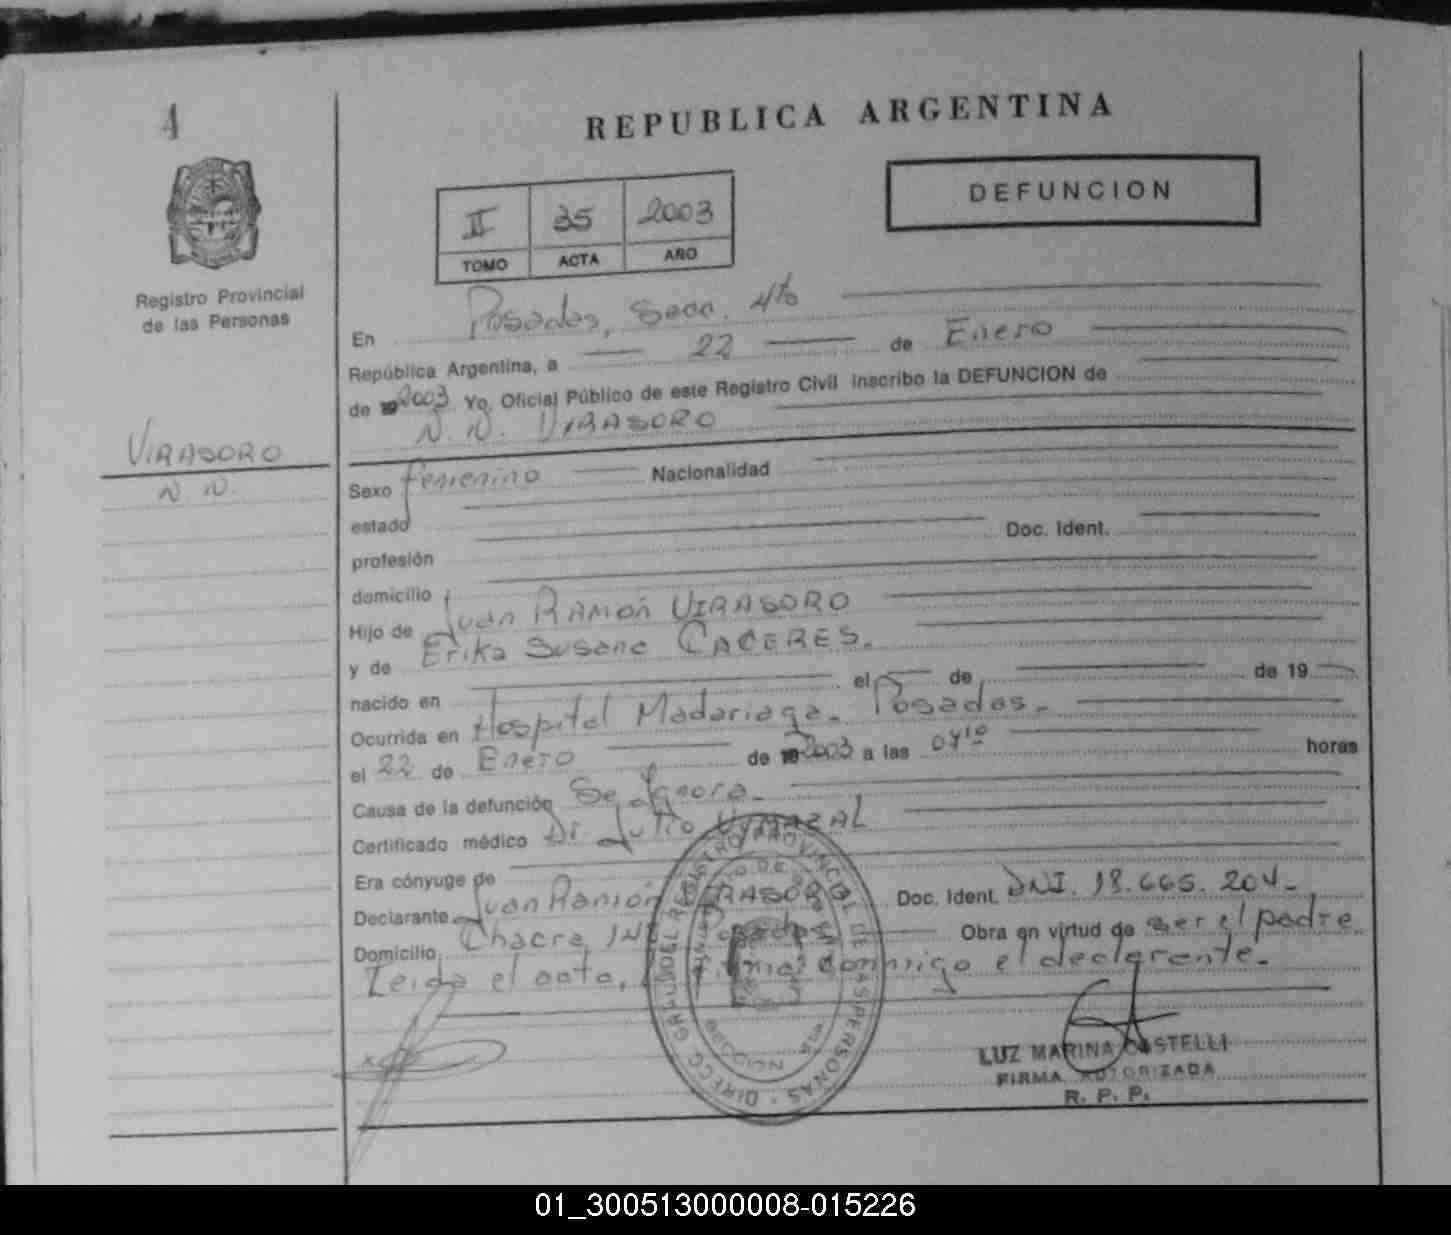 4
REPUBLICA ARGENTINA
DEFUNCION
II 35 2003
TOMO ACTA AÑO
Registro Provincial
de las Personas
En Posadas, Secc. 4ta
República Argentina, a 22 de Enero
de 19 2003 Yo, Oficial Público de este Registro Civil inscribo la DEFUNCION de
N. N. VIRASORO
VIRASORO
N. N.
Sexo femenino Nacionalidad
estado
profesión Doc. Ident.
domicilio
Hijo de Juan RAMÓN VIRASORO
y de Erika Susana CACERES.
nacido en el de de 19
Ocurrida en Hospital Madariaga. Posadas.
el 22 de Enero de 19 2003 a las 07¹⁰ horas
Causa de la defunción Se Ignora.
Certificado médico Dr. Julio
Era cónyuge de
Declarante Juan Ramón VIRASORO Doc. Ident. DNI. 18.665.204-
Domicilio Chacra Posadas Obra en virtud de ser el padre.
Leida el acta, firma conmigo el declarante.
DIRECC. GRAL. DEL REGISTRO PROVINCIAL DE LAS PERSONAS
LUZ MARINA CASTELLI
FIRMA AUTORIZADA
R. P. P.
01_300513000008-015226